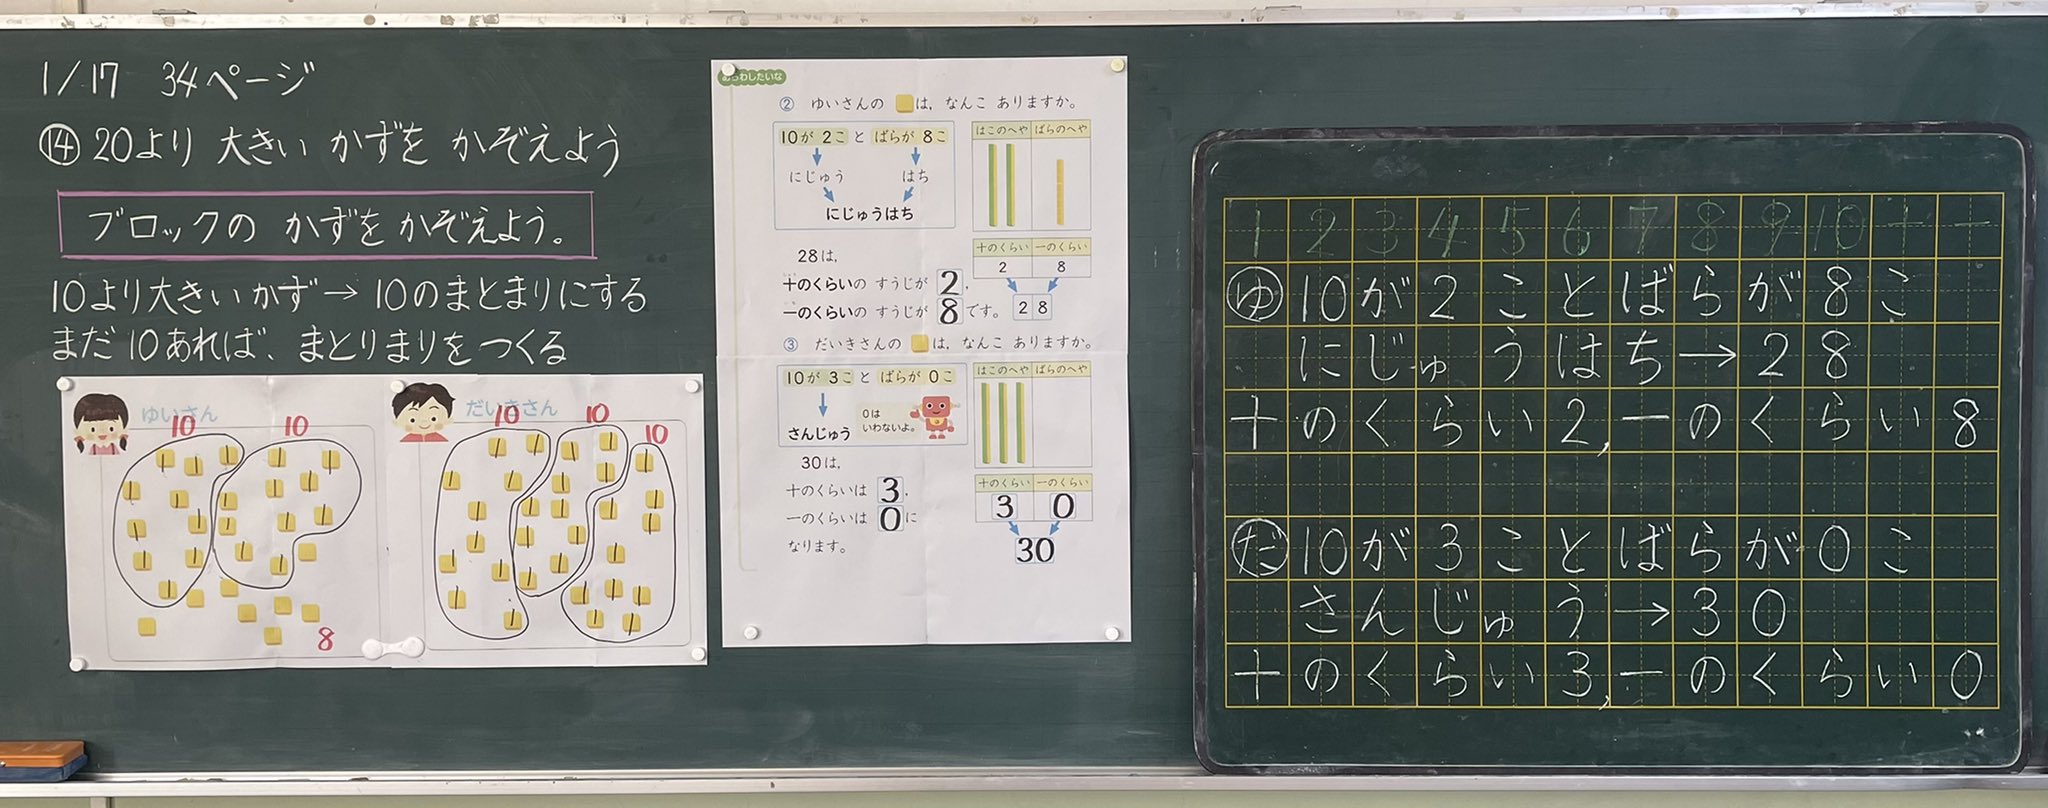 1/17 34ページ
⑭20より 大きい かずを かぞえよう
ブロックの かずを かぞえよう。
10より大きいかず→10のまとまりにする
まだ10あれば、まとりまりをつくる
ゆいさん
10 10
8
だいきさん
10 10 10
あらわしたいな
② ゆいさんの は、なんこ ありますか。
10が 2こ と ばらが 8こ
にじゅう はち
にじゅうはち
はこのへや ばらのへや
28は、
十のくらいの すうじが 2、
一のくらいの すうじが 8です。
十のくらい 一のくらい
2 8
2 8
③ だいきさんの は、なんこ ありますか。
10が 3こ と ばらが 0こ
さんじゅう
0は
いわないよ。
はこのへや ばらのへや
30は、
十のくらいは 3、
一のくらいは 0に
なります。
十のくらい 一のくらい
3 0
30
1 2 3 4 5 6 7 8 9 10 十 一
ゆ 10が2ことばらが8こ
にじゅうはち→28
十のくらい2,一のくらい8
だ 10が3ことばらが0こ
さんじゅう→30
十のくらい3,一のくらい0